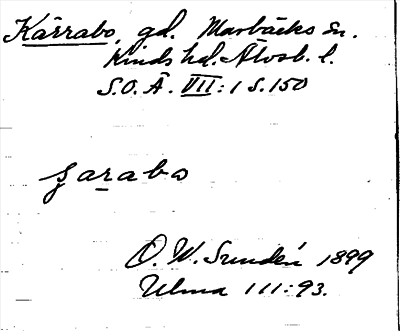 Kärrabo, gd. Marbäcks sn.
Kinds hd. Älvsb. l.
S.O.Ä. VII:1 S.150
şarabo
O.W. Sundén 1899
Ulma 111:93.